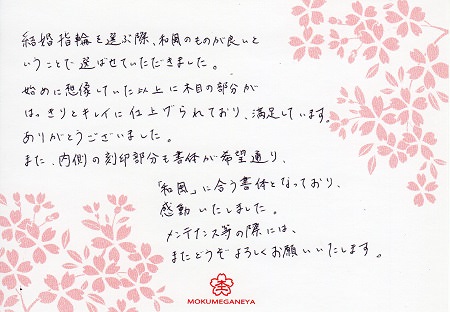 結婚指輪を選ぶ際、和風のものが良いと
いうことで選ばせていただきました。
始めに想像していた以上に木目の部分が
はっきりとキレイに仕上げられており、満足しています。
ありがとうございました。
また、内側の刻印部分も書体が希望通り、
「和風」に合う書体となっており、
感動いたしました。
メンテナンス等の際には、
またどうぞよろしくお願いいたします。
MOKUMEGANEYA